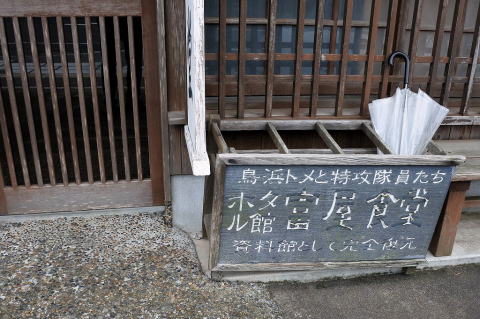 鳥浜トメと特攻隊員たち
ホタル館富屋食堂
資料館として完全復元